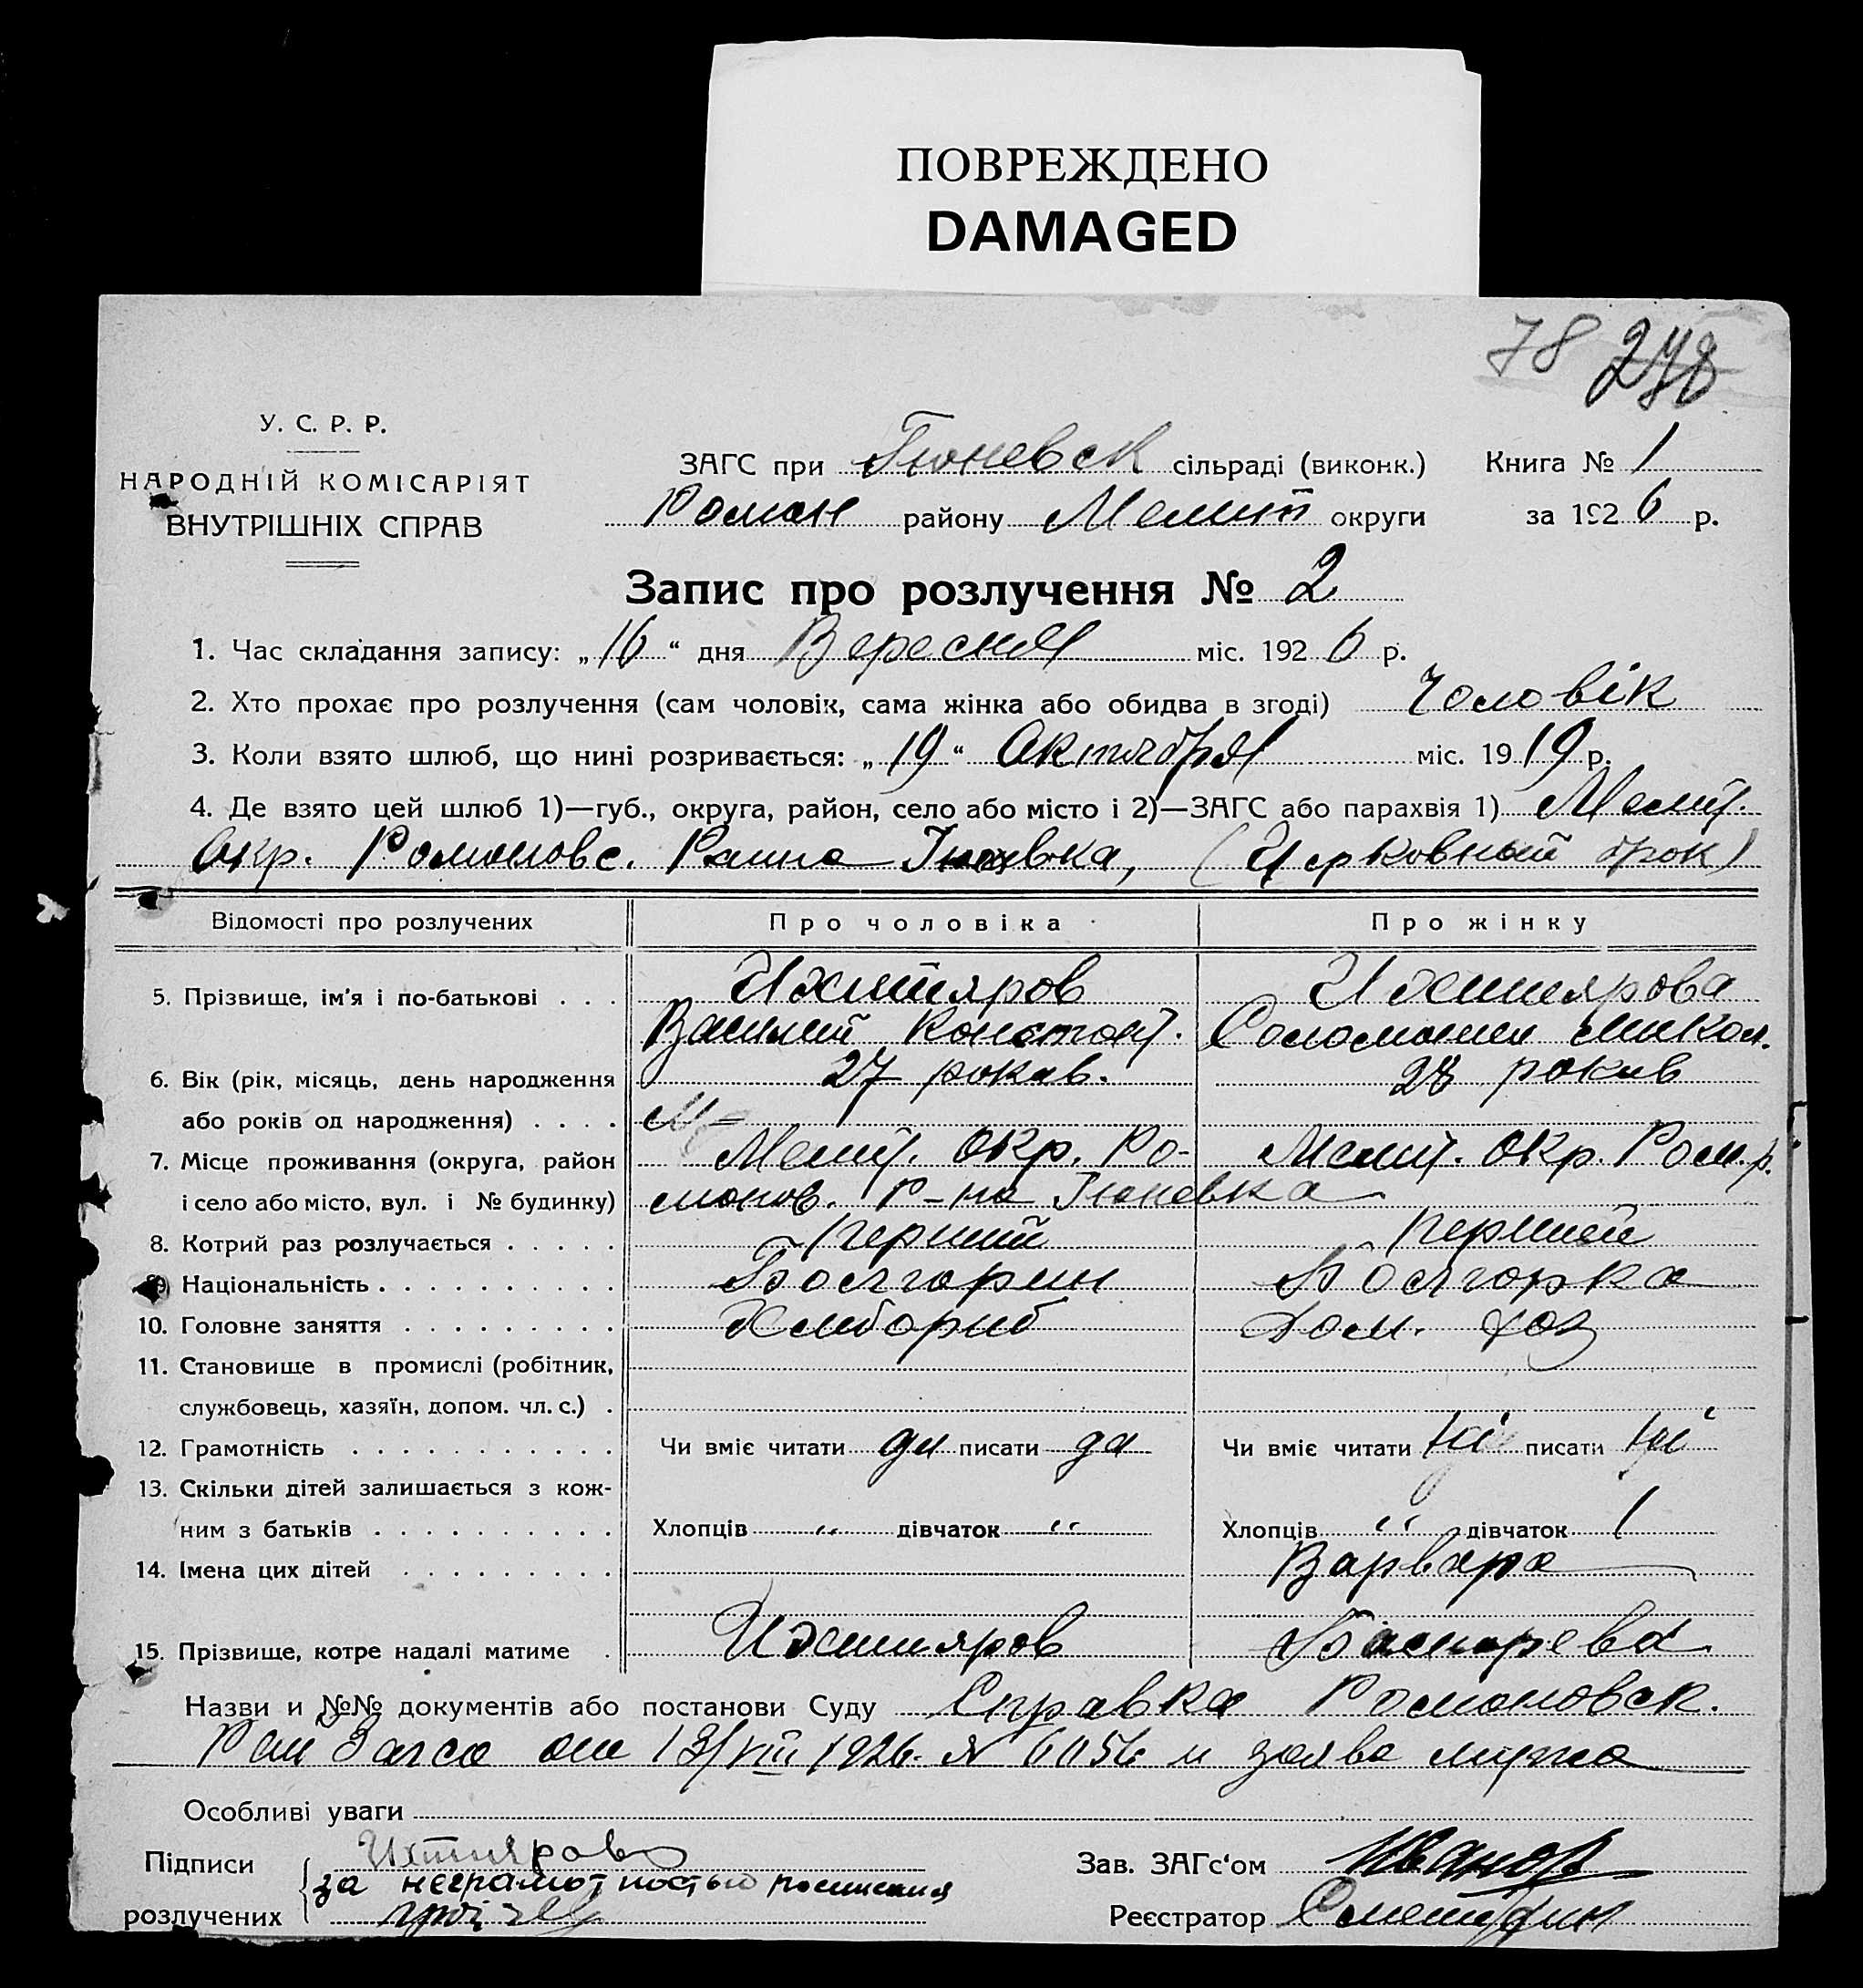 ПОВРЕЖДЕНО
DAMAGED
78 278
У. С. Р. Р.
НАРОДНІЙ КОМІСАРІЯТ
ВНУТРІШНІХ СПРАВ
ЗАГС при Гюневск сільраді (виконк.) Книга № 1
Роман району Мелит округи за 1926 р.
Запис про розлучення № 2
1. Час складання запису: „16“ дня Вересня міс. 1926 р.
2. Хто прохає про розлучення (сам чоловік, сама жінка або обидва в згоді) Чоловік
3. Коли взято шлюб, що нині розривається: „19“ Октября міс. 1919 р.
4. Де взято цей шлюб 1)—губ., округа, район, село або місто і 2)—ЗАГС або парахвія 1) Мелит.
Окр. Романовс. Гюневка, (Церковный брак)
Відомості про розлучених Про чоловіка Про жінку
5. Прізвище, ім'я і по-батькові . . . Ихтияров Ихтиярова
Василий Констант. Микол.
6. Вік (рік, місяць, день народження 27 рокив. 28 рокив
або років од народження) . . . .
7. Місце проживання (округа, район Мелит. Окр. Ро- Мелит. Окр. Ром. р.
і село або місто, вул. і № будинку) манов. Р-на Гюневка
8. Котрий раз розлучається . . . . . Перший Перший
9. Національність . . . . . . . . . . Болгарин Болгарка
10. Головне заняття . . . . . . . . . Хлибориб Дом. хоз
11. Становище в промислі (робітник,
службовець, хазяїн, допом. чл. с.) .
12. Грамотність . . . . . . . . . . . Чи вміє читати да писати да Чи вміє читати ні писати ні
13. Скільки дітей залишається з кож-
ним з батьків . . . . . . . . . . Хлопців " дівчаток " Хлопців " дівчаток 1
14. Імена цих дітей . . . . . . . . . Варвара
15. Прізвище, котре надалі матиме . Ихтияров
Назви и №№ документів або постанови Суду Справка Романовск.
Рай Загса от 13/VIII 1926. № 6056 и заява мужа
Особливі уваги
Підписи Ихтияров Зав. ЗАГс'ом Иванов
за неграмотностью
розлучених Реєстратор